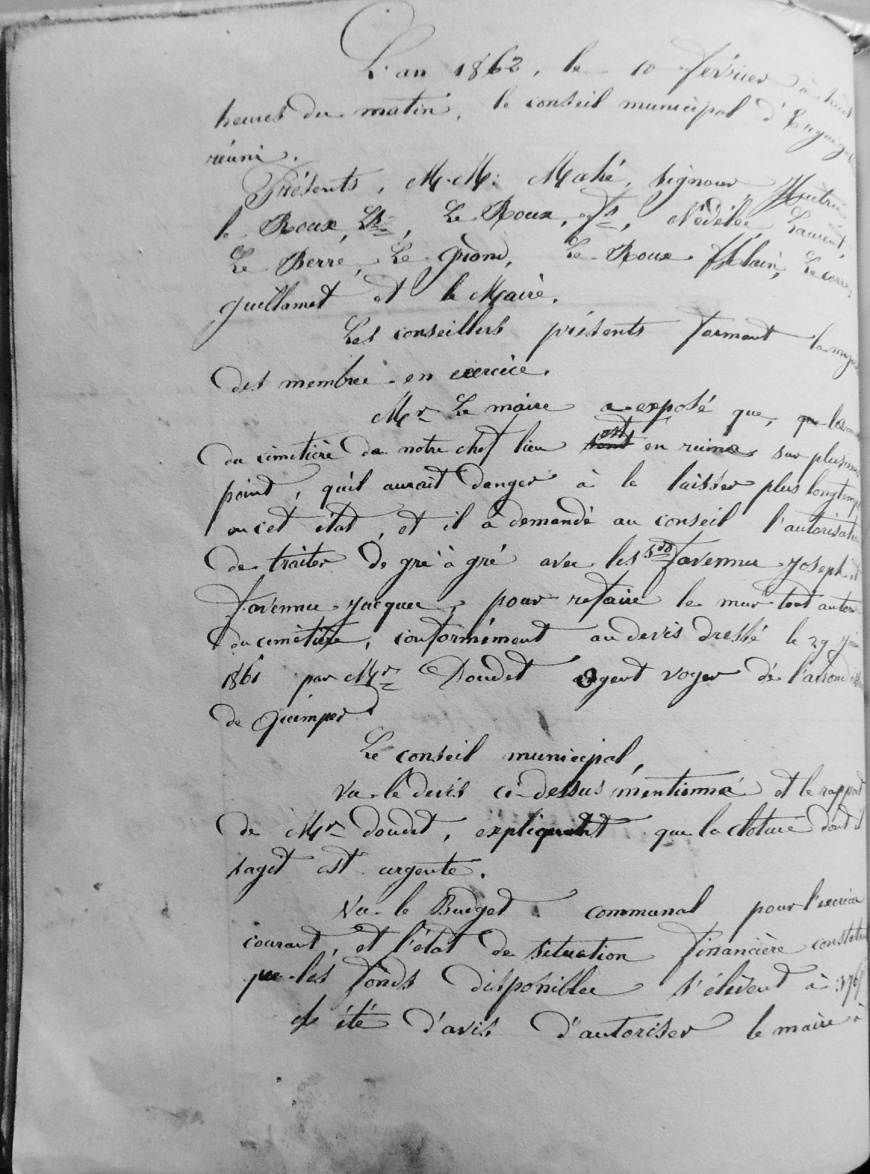 L'an 1862, le 10 février à huit
heures du matin, le conseil municipal d'Erguégat
réuni.
Présents, M.M: Mahé, Signour,
le Roux, Le Roux, Nédélec Laurent,
Le Berre, Le Grand, Le Roux Alain,
Guillamet et le Maire.
Les conseillers présents formant la
des membre en exercice.
Mr Le maire a exposé que,
du cimetière de notre chef lieu est en ruine sur plusieurs
point, qu'il aurait danger à le laisser plus longtemps
en cet état, et il a demandé au conseil l'autorisation
de traiter de gré à gré avec les sds Tavennec Joseph et
Tavennec Jacques, pour refaire le mur tout autour
du cimetière, conformément au devis dressé le 29
1861 par Mr Doudet agent voyer de l'arrond
de Quimper.
Le conseil municipal,
Vu le devis ci-dessus mentionné et le rapport
de Mr doudet, expliquant que la cloture dont il
sagit est urgente.
Vu le Budget communal pour l'exercice
courant, et l'état de situation financière constate
que les fonds disponibles s'élèvent à
A été d'avis d'autoriser le maire à